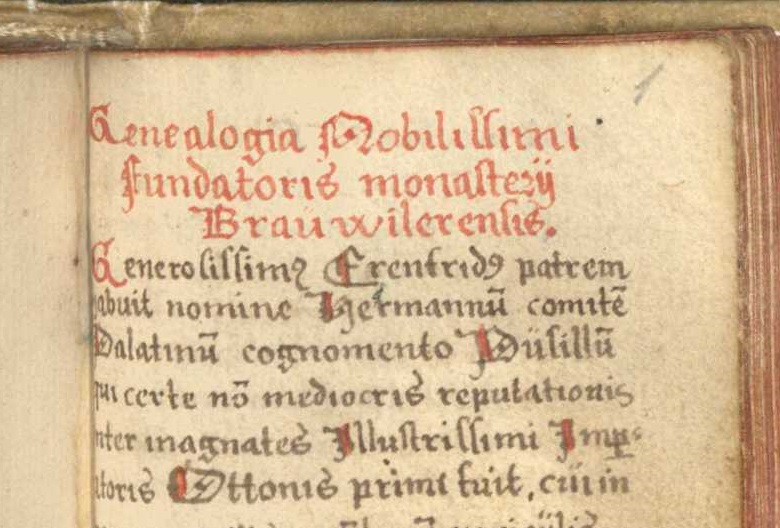 1
Genealogia Nobilissimi
fundatoris monasterij
Brauwilerensis.
Generosissimꝰ Erenfridꝰ patrem
abuit nomine Hermannū comitē
Palatinū cognomento Püsillū
qui certe nō mediocris reputationis
nter magnates Illustrissimi Imp̱
atoris Ottonis primi fuit, cui in